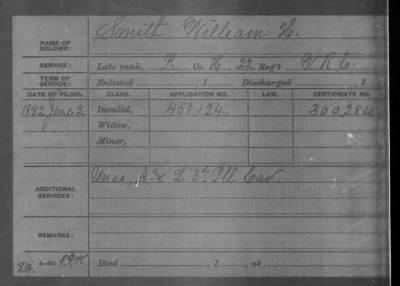 NAME OF SOLDIER: Smith, William H.
SERVICE: Late rank, P. Co. H, 22 Reg't V. R. C.
TERM OF SERVICE: Enlisted , 1 Discharged , 1
DATE OF FILING. CLASS. APPLICATION NO. LAW. CERTIFICATE NO.
1882 June 2 Invalid, 451,124
Widow,
Minor,
ADDITIONAL SERVICES: A & L 3d Ill Cav.
REMARKS:
Died , 1 , at